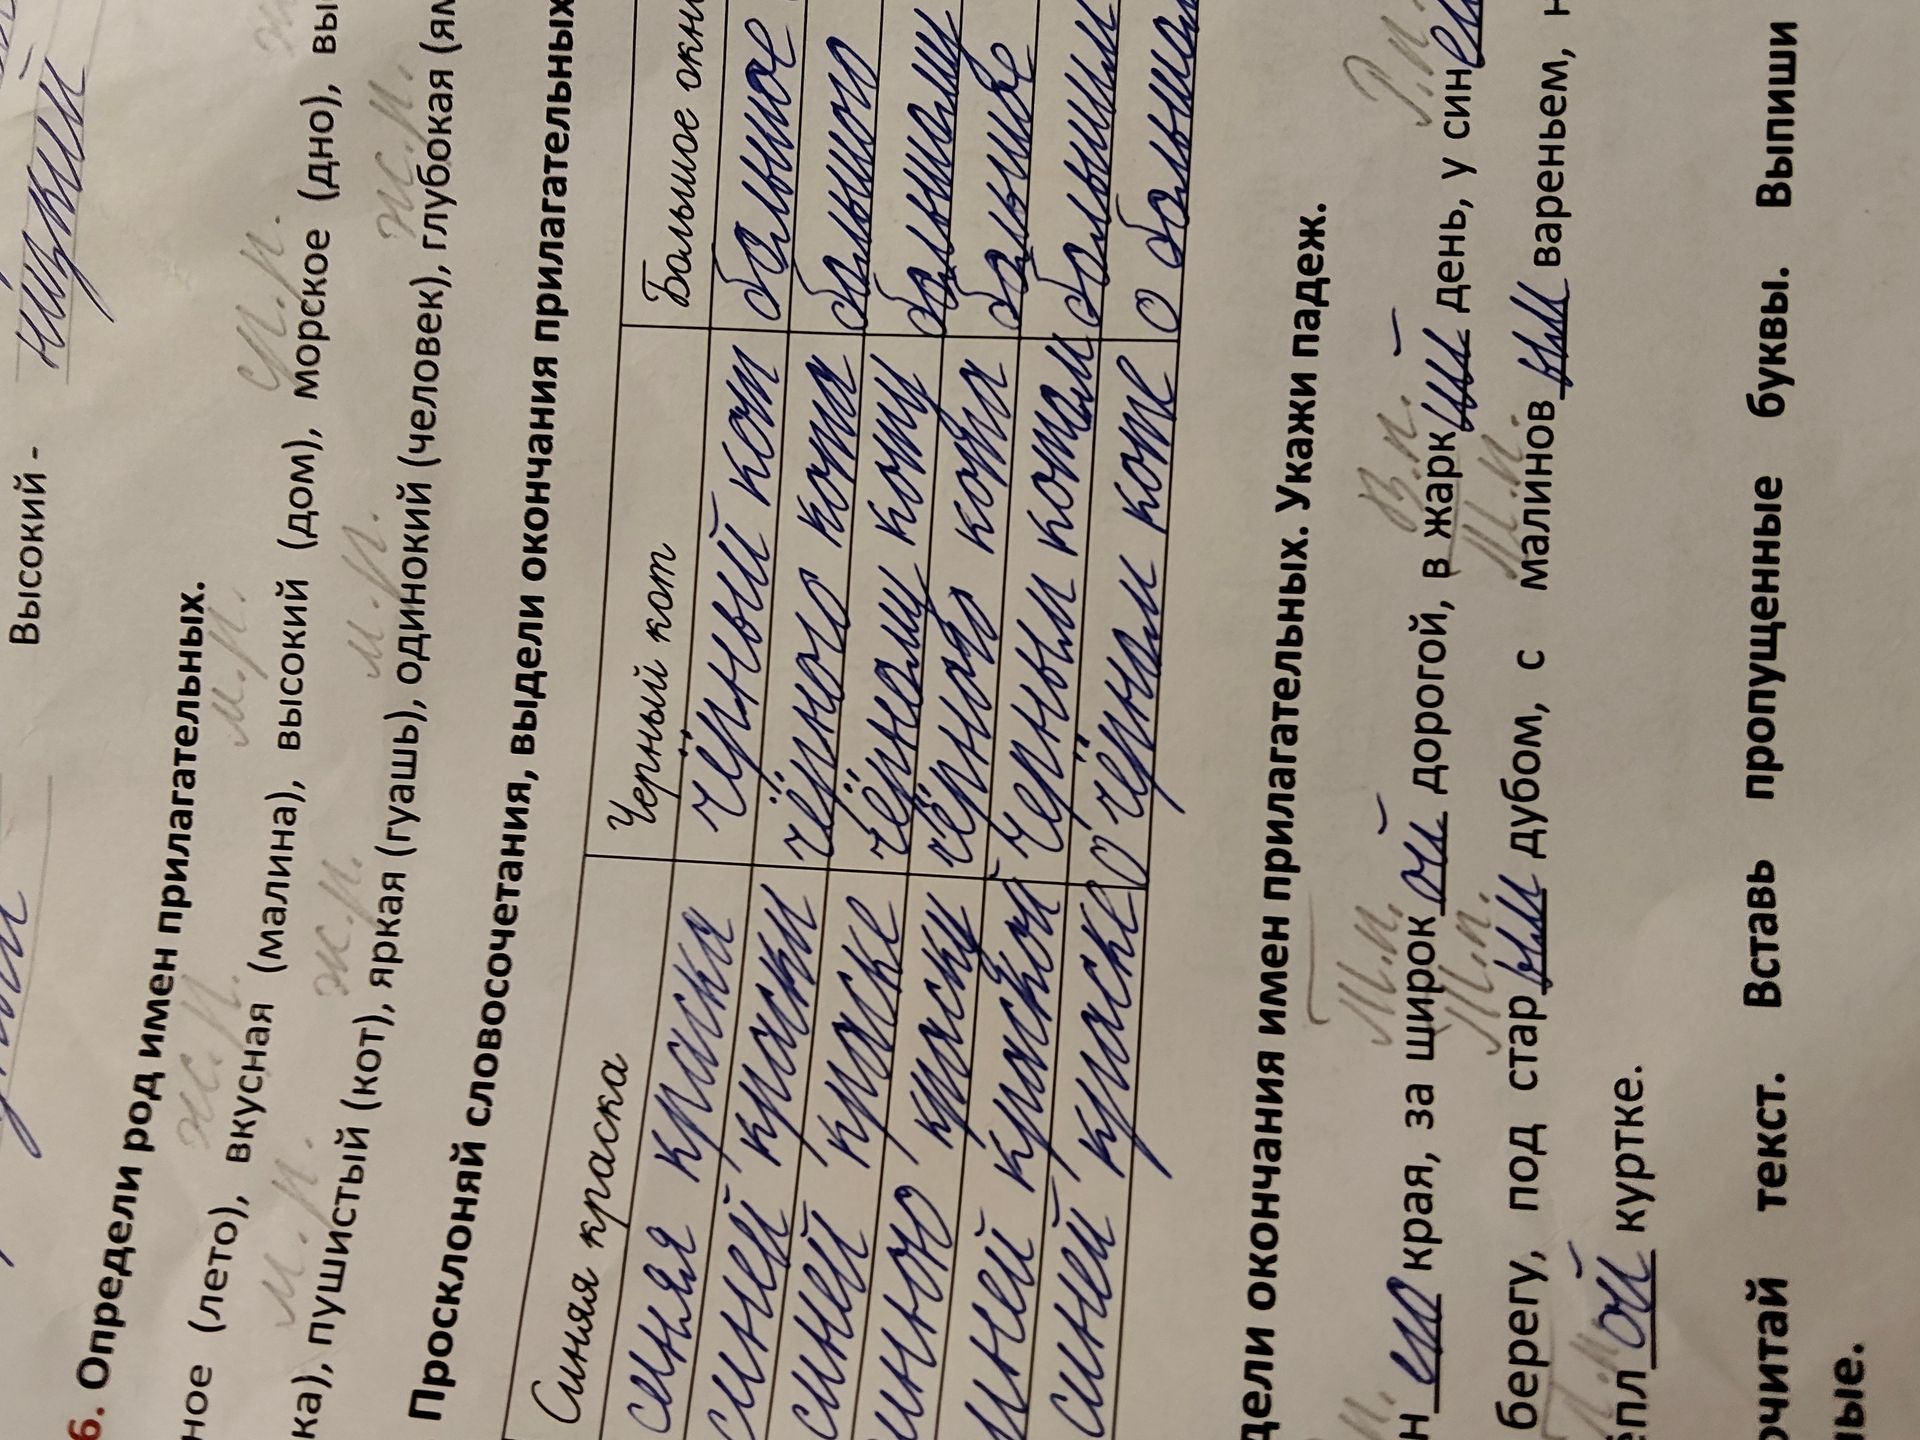 Высокий - низкий
6. Определи род имен прилагательных.
ж.р. м.р. ср.р.
ное (лето), вкусная (малина), высокий (дом), морское (дно), вы
м.р. ж.р. м.р. ж.р.
ка), пушистый (кот), яркая (гуашь), одинокий (человек), глубокая (ям
Просклоняй словосочетания, выдели окончания прилагательных
Синяя краска Черный кот Большое окн
синяя краска чёрный кот большое
синей краски чёрного кота большого
синей краске чёрному коту большому
синюю краску чёрного кота большое
синей краской черным котом большим
синей краске о чёрном коте о большом
дели окончания имен прилагательных. Укажи падеж.
Т.п. В.п. Р.п.
н его края, за широк ой дорогой, в жарк ий день, у син ем
Т.п. Т.п.
берегу, под стар ым дубом, с малинов ым вареньем, н
ёпл ой куртке.
очитай текст. Вставь пропущенные буквы. Выпиши
ные.